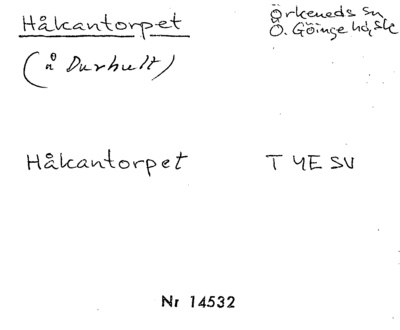 Håkantorpet
Örkeneds sn
Ö. Göinge hd, Sk
(å Durhult)
Håkantorpet T 4E SV
Nr 14532